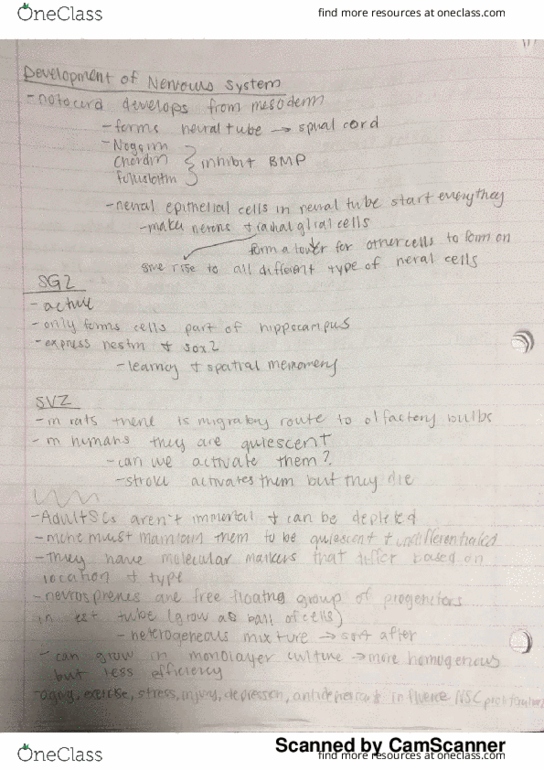 OneClass
find more resources at oneclass.com
Development of Nervous System
- notocord develops from mesoderm
- forms neural tube → spinal cord
- Noggin
Chordin } inhibit BMP
follistatin
- neural epithelial cells in neural tube start everything
- make nerons + radial glial cells
form a tower for other cells to form on
give rise to all different type of neral cells
SGZ
- active
- only forms cells part of hippocampus
- express nestin + sox2
- learning + spatial memory
SVZ
- in rats there is migratory route to olfactory bulbs
- in humans they are quiescent
- can we activate them?
- stroke activates them but they die
- Adult SCs aren't immortal + can be depleted
- niche must maintain them to be quiescent + undifferentiated
- they have molecular markers that differ based on
location + type
- neurospheres are free floating group of progenitors
in tube (grow as ball of cells)
- heterogeneous mixture → sort after
- can grow in monolayer culture → more homogenous
but less efficiency
- aging, exercise, stress, injury, depression, antidepressants influence NSC
Scanned by CamScanner
OneClass
find more resources at oneclass.com